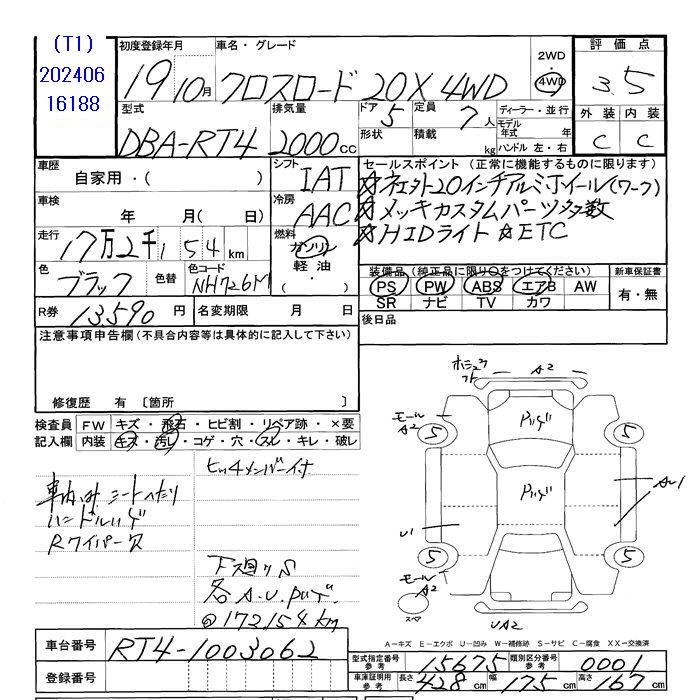 (T1)
202406
16188
初度登録年月
19 10月
車名・グレード
クロスロード 20X 4WD
2WD
4WD
評価点
3.5
外装 内装
C C
型式
DBA-RT4
排気量
2000cc
ドア 5
形状
定員 7人
積載 kg
ディーラー・並行
モデル年式 年
ハンドル 左・右
車歴
自家用・( )
シフト
IAT
セールスポイント (正常に機能するものに限ります)
☆社外20インチアルミホイール(ワーク)
☆メッキカスタムパーツ多数
☆HIDライト ☆ETC
車検
年 月( 日)
冷房
AAC
走行
17万2千154km
燃料
ガソリン
軽油・
( )
色
ブラック
色替
色コード
NH726M
装備品 (純正品に限り○をつけてください)
PS PW ABS エアB AW
SR ナビ TV カワ
新車保証書
有・無
R券 13590円
名変期限 月 日
後日品
注意事項申告欄 (不具合内容等は具体的に記入して下さい)
修復歴 有 〔箇所 〕
検査員
記入欄
FW キズ・飛石・ヒビ割・リペア跡・×要
内装 キズ・汚レ・コゲ・穴・スレ・キレ・破レ
車内凹み シートヘタリ
ハンドルハゲ
Rワイパー欠
下廻りS
各A.U.
@172154km
A2
モール
A2
5
5
5
5
U1
モール
A2
スペア
UA2
A-キズ E-エクボ U-凹み W-補修跡 S-サビ C-腐食 XX-交換済
車台番号 RT4-1003062
登録番号
型式指定番号
参考
15675
類別区分番号
参考
0001
車庫証明用
参考
長さ 428cm 幅 175cm 高さ 167cm